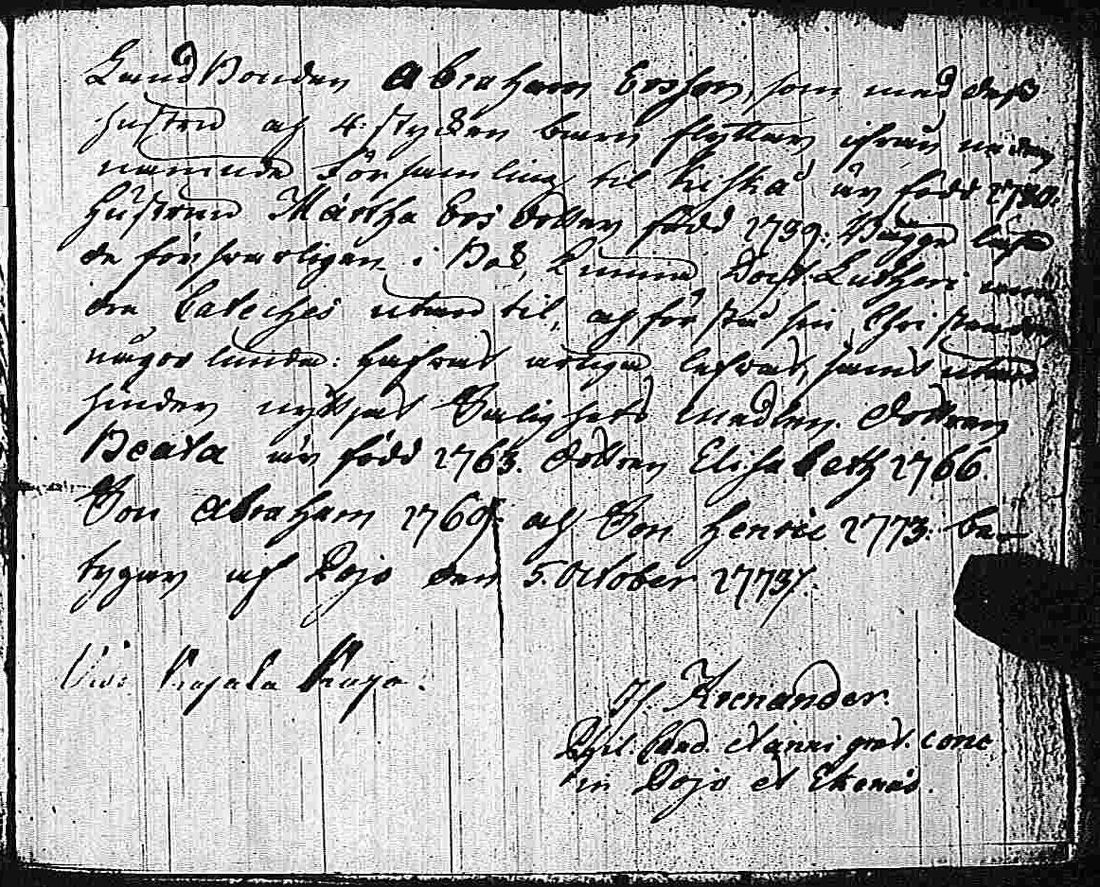 Land Bonden Abraham Ersson, som med dess
hustru och 4: stycken barn flyttar ifrån nedan
nämnde Församling til Kisko är född 1730:
Hustrun Märtha Ers dotter född 1739: Bägge läsa
de försvarligen i Bok, kunna Doct. Lutheri min
dre Cateches utan til, och förstå sin Christendom
någorlunda: hafwa ärliga lefwat, samt utan
hinder nyttjat Salighets medlen. Dottren
Beata är född 1763. Dottren Elisabeth 1766.
Son Abraham 1769: och Son Henric 1773: be-
tygar af Pojo den 5. October 1773.
Kisko
H. Arenander.
Phil. Cand. et conc
in Pojo et Ekenäs.